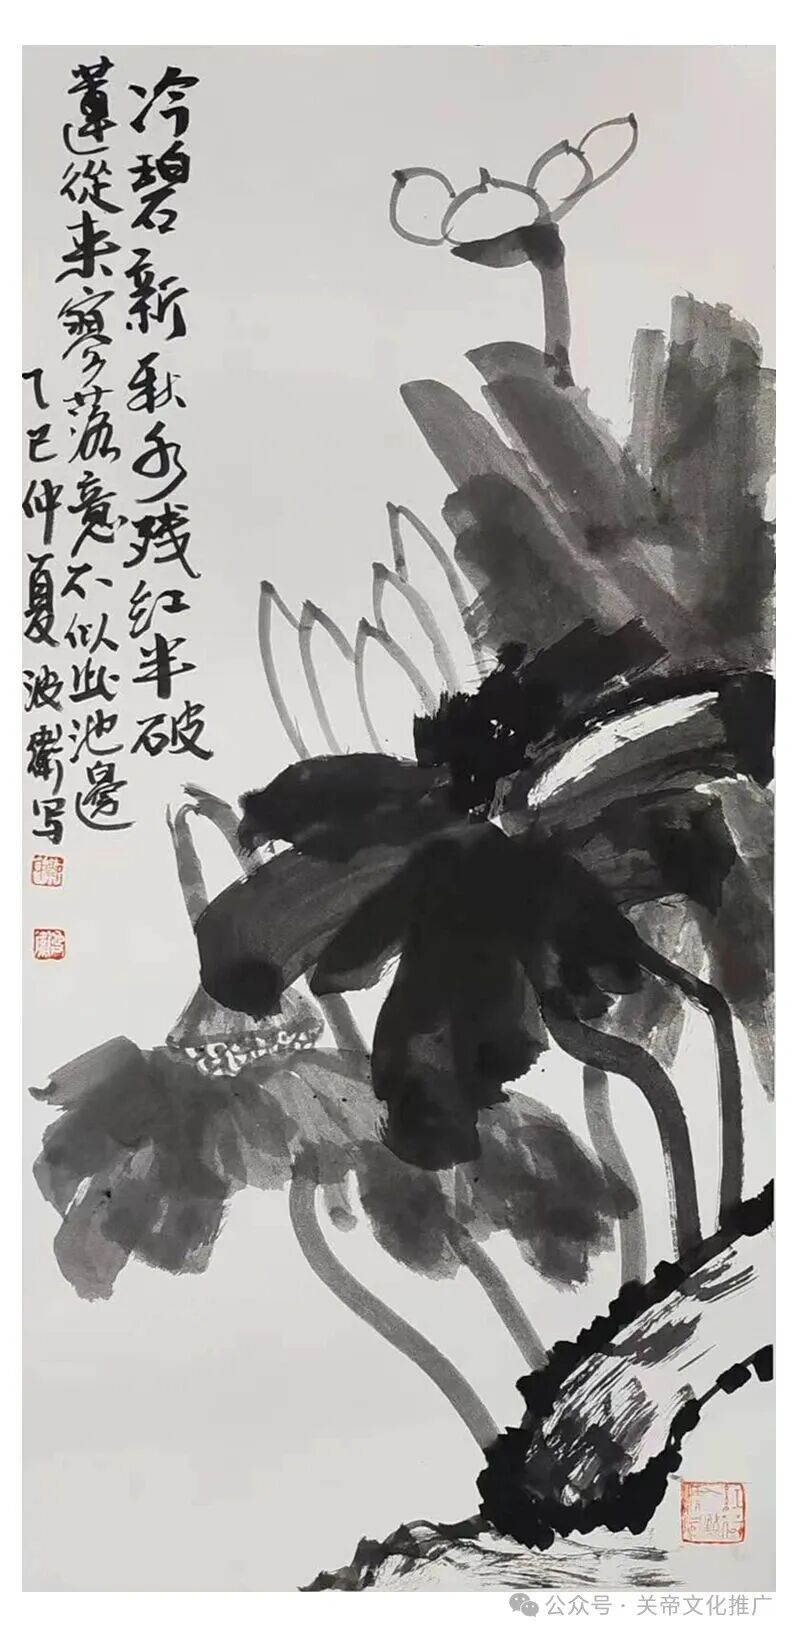 冷碧新秋水残红半破
蓮從来寥落意不似此池邊
乙巳仲夏波衛写
公众号 · 关帝文化推广